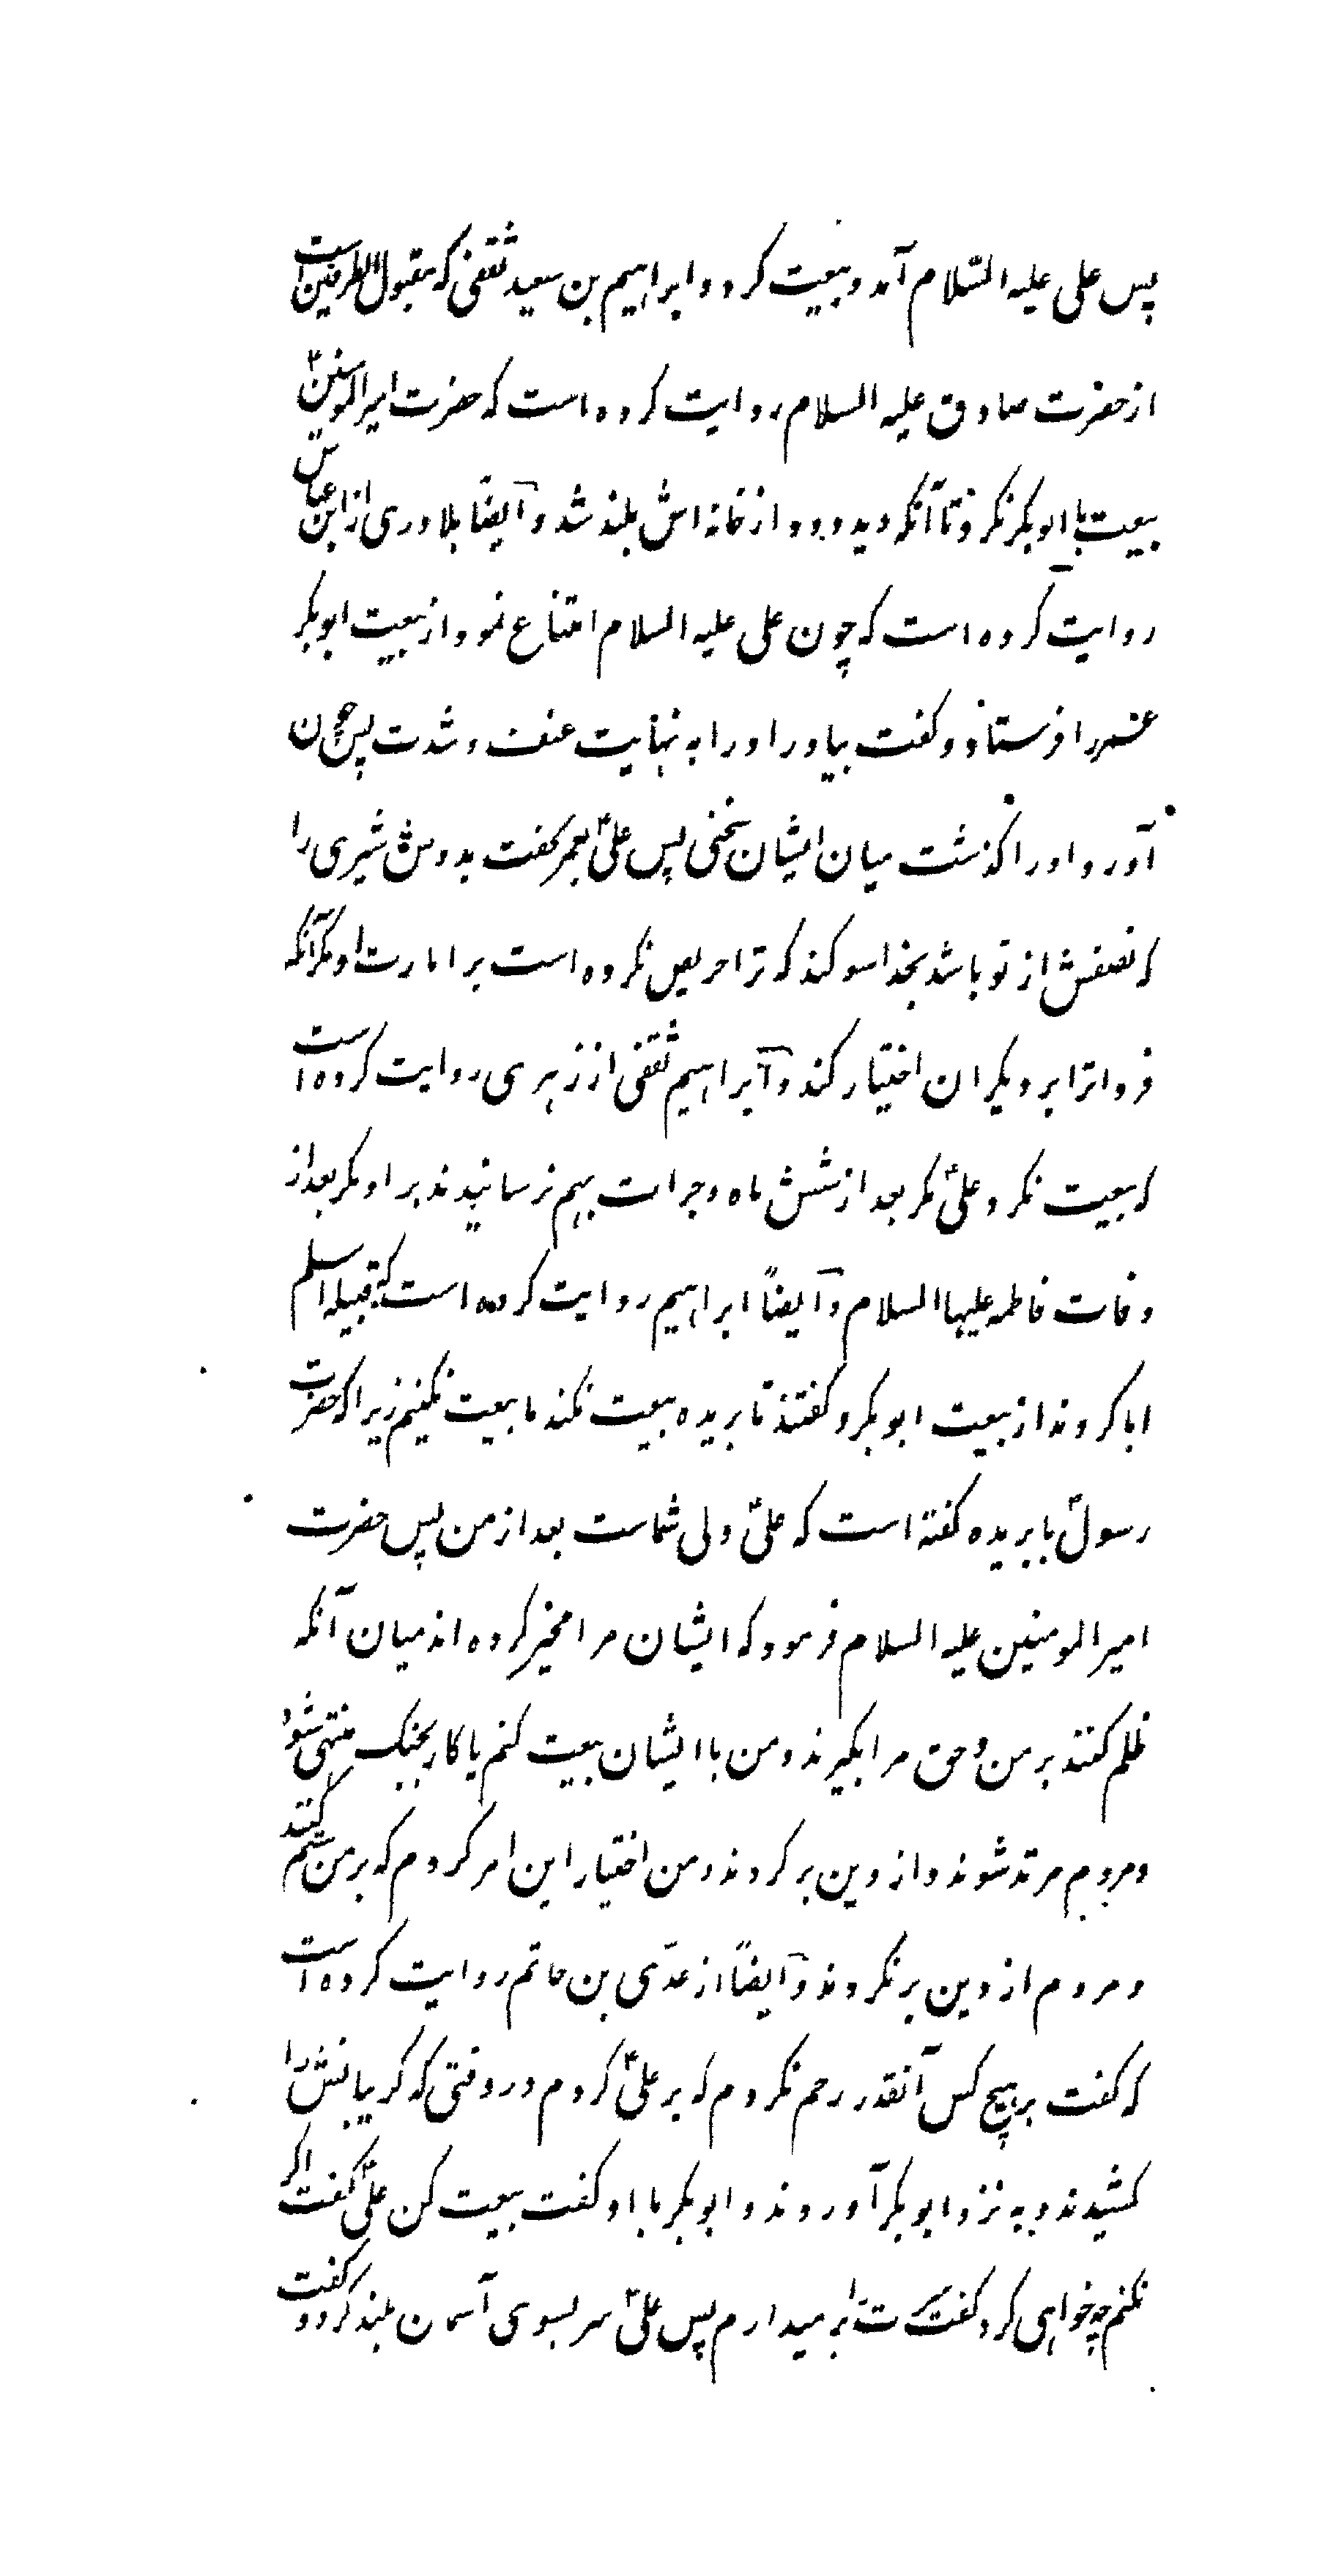 پس علی علیه السّلام آمد و بیعت کرد و ابراهیم بن سعید ثقفی که مقبول الطرفین است
از حضرت صادق علیه السلام روایت کرده است که حضرت امیرالمومنینؑ
بیعت با ابوبکر نکرد تا آنکه دید دود از خانه اش بلند شد و ایضاً بلادری از ابن عباس
روایت کرده است که چون علی علیه السلام امتناع نمود از بیعت ابوبکر
عمر را فرستاد و گفت بیاور او را به نهایت عنف و شدت پس چون
آورد او را گذشت میان ایشان سخنی پس علیؑ بعمر گفت بدوش شیری را
که نصفش از تو باشد بخدا سوگند که ترا حریص نکرده است بر امارت او مگر آنکه
فردا ترا بر دیگران اختیار کند و ابراهیم ثقفی از زهری روایت کرده است
که بیعت نکرد علیؑ مگر بعد از شش ماه و جرات بهم نرسانیدند بر او مگر بعد از
وفات فاطمه علیها السلام و ایضاً ابراهیم روایت کرده است که قبیله اسلم
ابا کردند از بیعت ابوبکر و گفتند تا بریده بیعت نکند ما بیعت نکنیم زیرا که حضرت
رسولؐ با بریده گفته است که علیؑ ولی شماست بعد از من پس حضرت
امیرالمومنین علیه السلام فرمود که ایشان مرا مخیر کرده اند میان آنکه
ظلم کنند بر من و حق مرا بگیرند و من با ایشان بیعت کنم یا کار بجنگ منتهی شود
و مردم مرتد شوند و از دین برگردند و من اختیار این امر کردم که بر من ستم کنند
و مردم از دین برنگردند و ایضاً از عدّی بن حاتم روایت کرده است
که گفت بر هیچ کس آنقدر رحم نکردم که بر علیؑ کردم در وقتی که گریبانش را
کشیدند و به نزد ابوبکر آوردند و ابوبکر با او گفت بیعت کن علیؑ گفت اگر
نکنم چه خواهی کرد گفت سرت را بر میدارم پس علیؑ سر بسوی آسمان بلند کرد و گفت